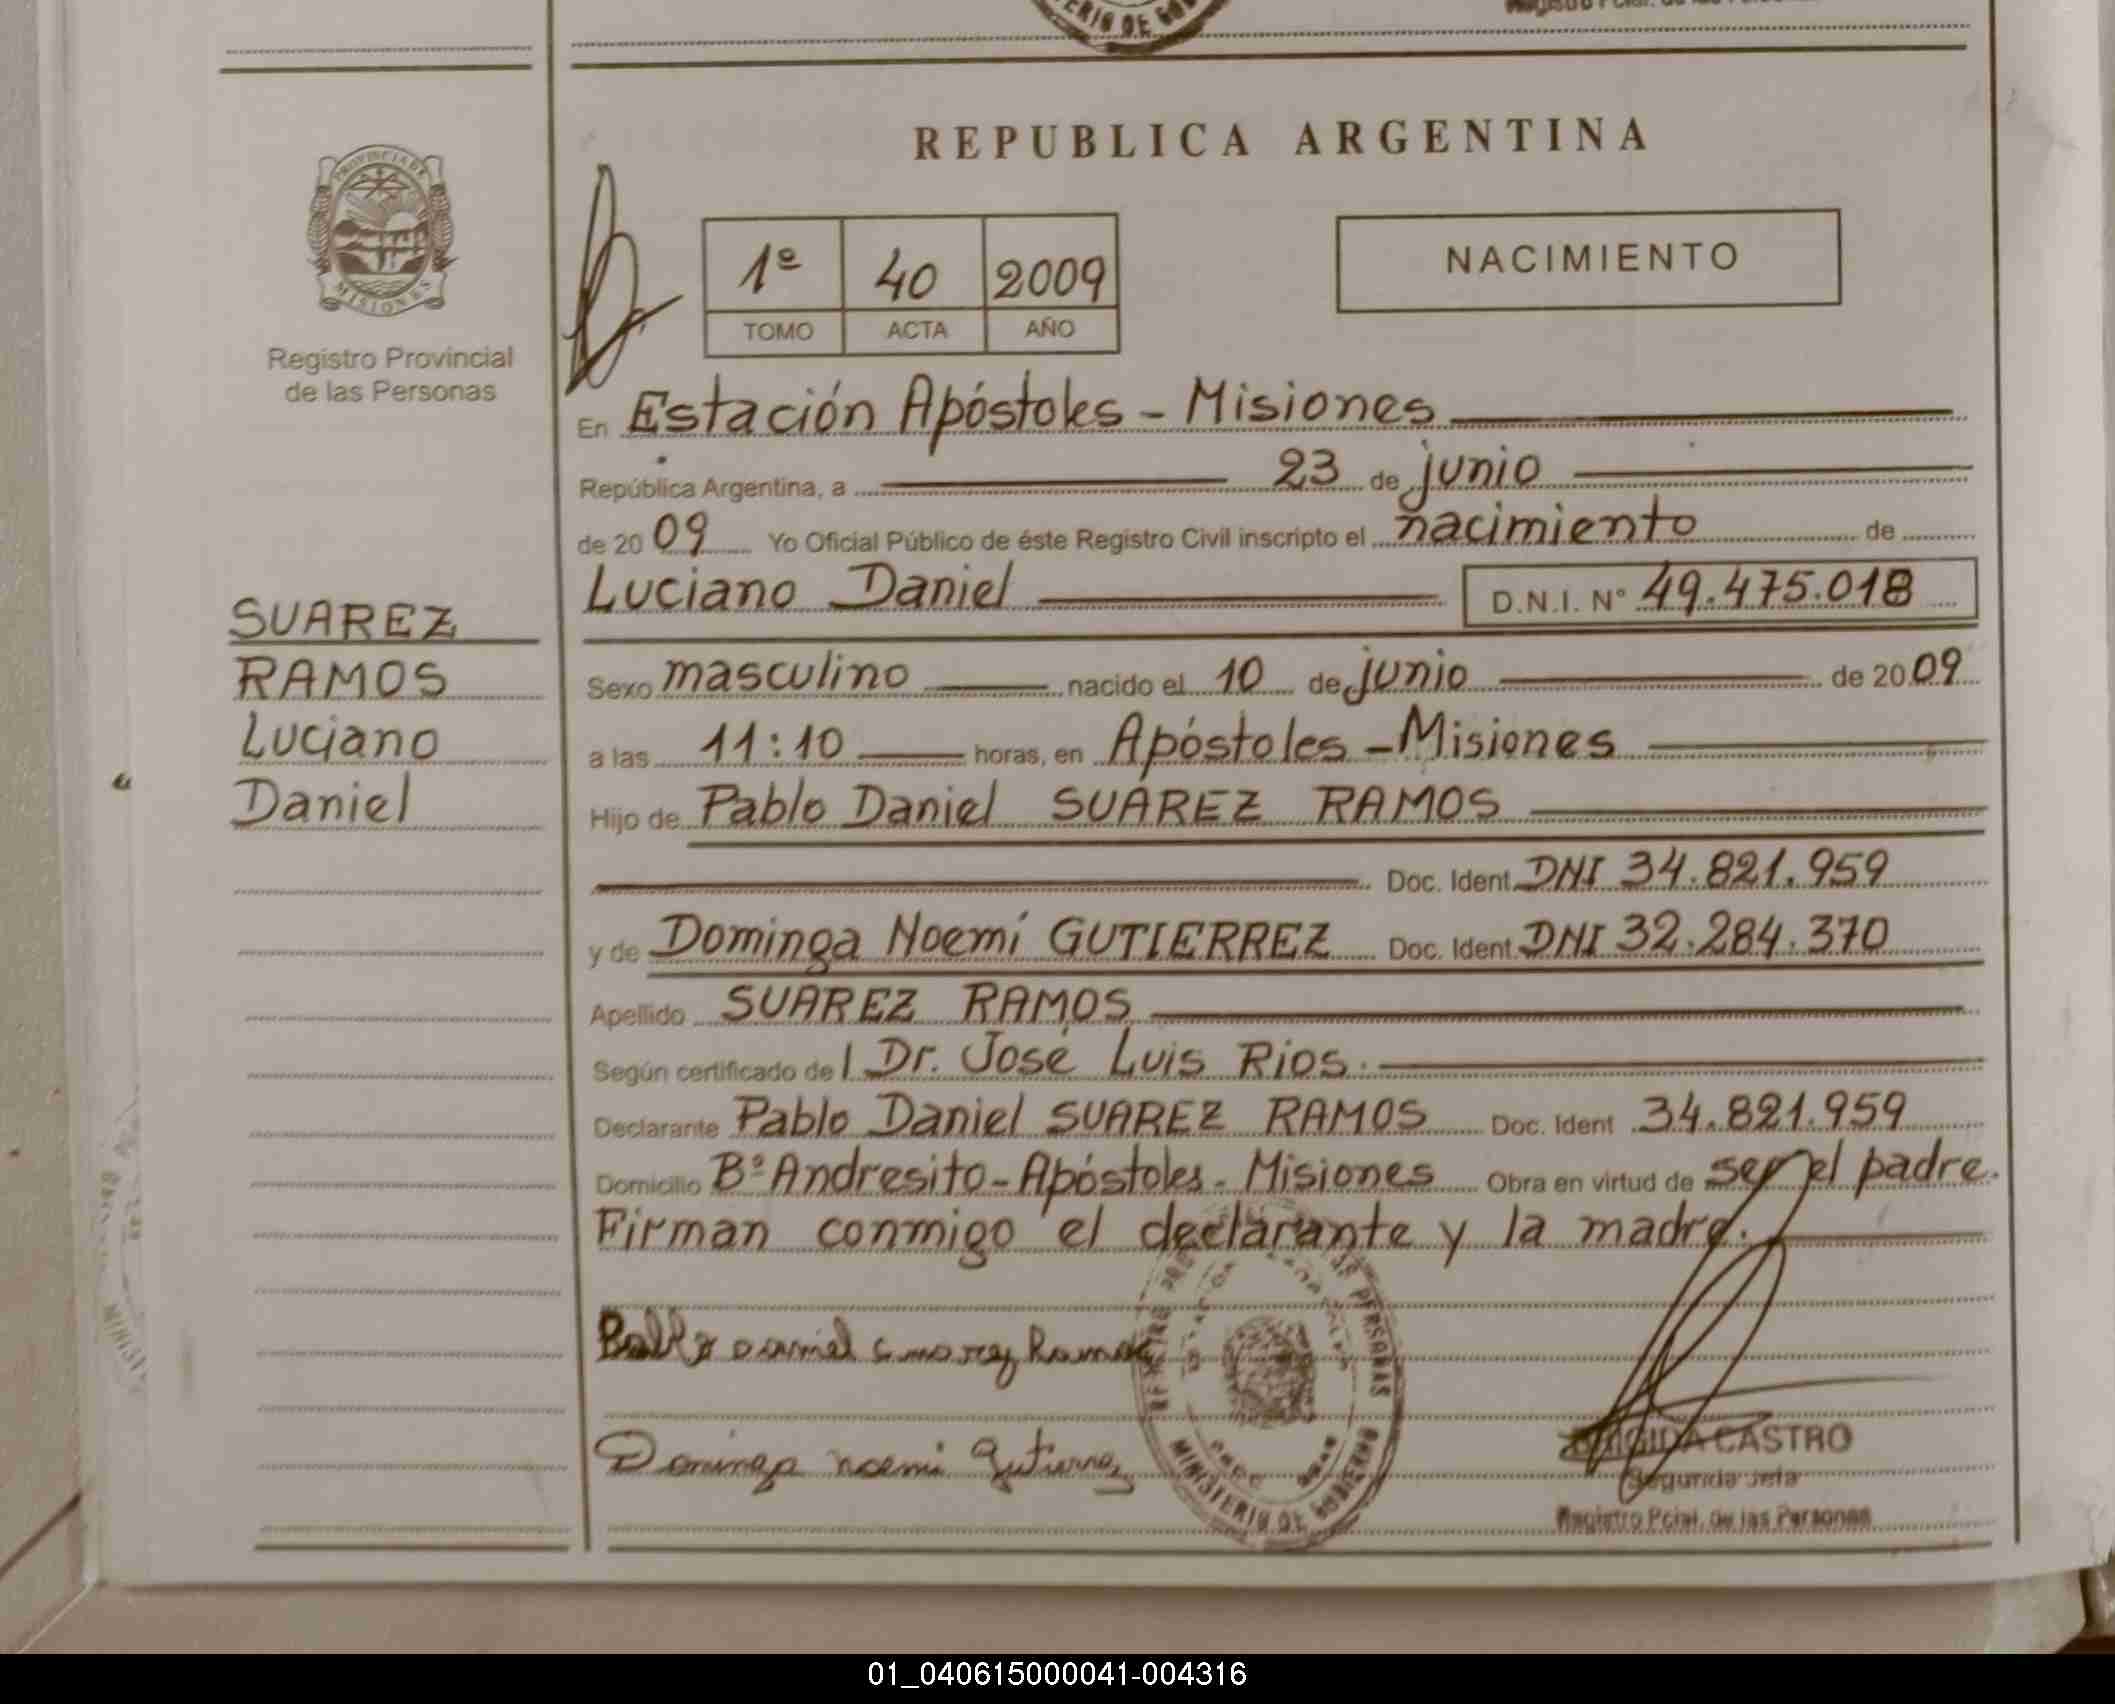 MINISTERIO DE GOB
Registro Pcial. de las Personas
PROVINCIA DE
MISIONES
Registro Provincial
de las Personas
REPUBLICA ARGENTINA
1º 40 2009
TOMO ACTA AÑO
NACIMIENTO
En Estación Apóstoles - Misiones
República Argentina, a 23 de junio
de 2009 Yo Oficial Público de éste Registro Civil inscripto el nacimiento de
Luciano Daniel D.N.I. Nº 49.475.018
SUAREZ
RAMOS
Luciano
Daniel
Sexo masculino nacido el 10 de junio de 2009
a las 11:10 horas, en Apóstoles - Misiones
Hijo de Pablo Daniel SUAREZ RAMOS
Doc. Ident. DNI 34.821.959
y de Dominga Noemí GUTIERREZ Doc. Ident. DNI 32.284.370
Apellido SUAREZ RAMOS
Según certificado del Dr. José Luis Rios.
Declarante Pablo Daniel SUAREZ RAMOS Doc. Ident 34.821.959
Domicilio Bº Andresito - Apóstoles - Misiones Obra en virtud de ser el padre.
Firman conmigo el declarante y la madre.
Pablo Daniel Suarez Ramos
Dominga Noemi Gutierrez
DE PERSONAS
MINISTERIO DE GOBIERNO
BRIGIDA CASTRO
Segunda Jefa
Registro Pcial. de las Personas
01_040615000041-004316